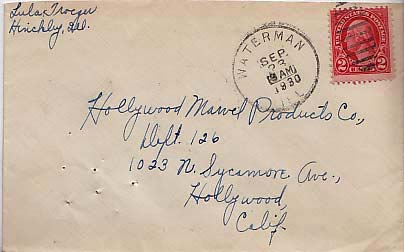 Lula Troeger
Hinckly, Ill.
WATERMAN
SEP
23
AM
1930
ILL.
2 2
Hollywood Marvel Products Co.,
Dept. 126
1023 N. Sycamore Ave.,
Hollywood,
Calif.